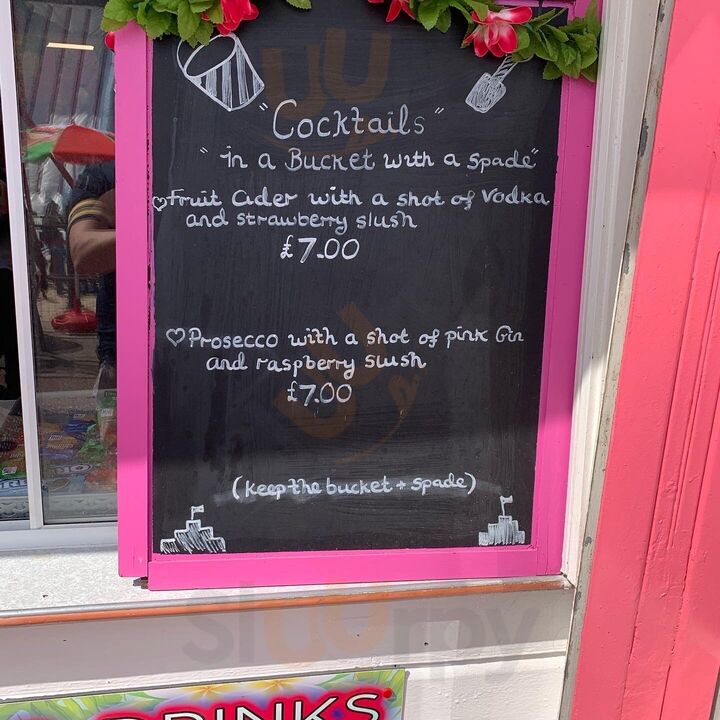 "Cocktails"
"in a Bucket with a spade"
♡Fruit Cider with a shot of Vodka
and strawberry slush
£7.00
♡Prosecco with a shot of pink Gin
and raspberry slush
£7.00
(keep the bucket + spade)
sluurpy
DRINKS